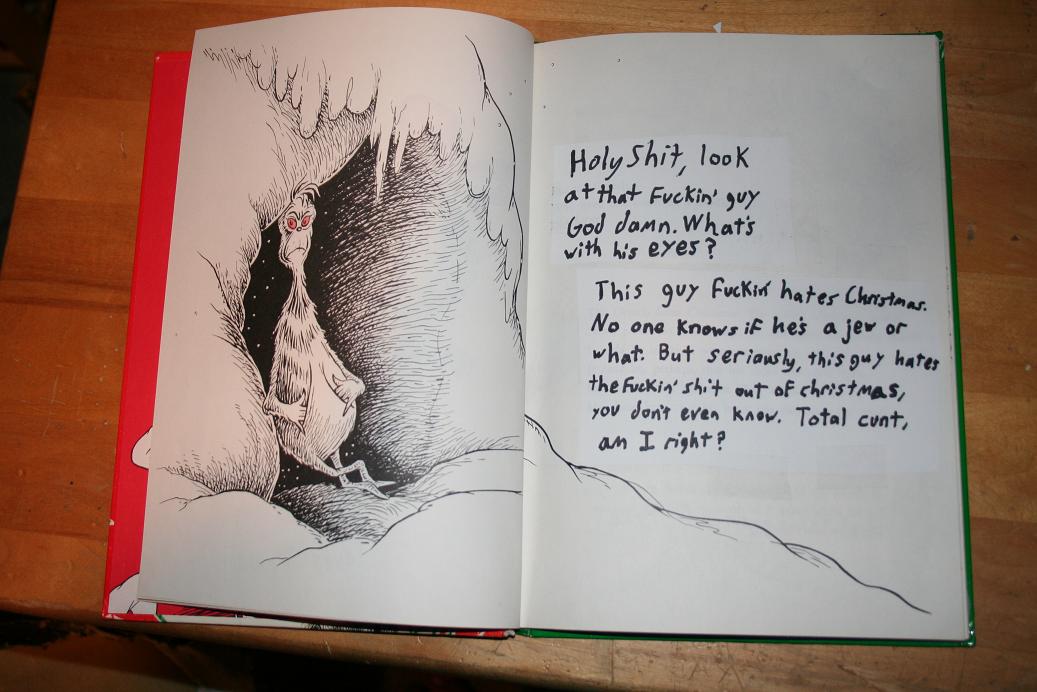 Holy Shit, look
at that Fuckin' guy
God damn. What's
with his eyes?
This guy Fuckin' hates Christmas.
No one knows if he's a jew or
what. But seriously, this guy hates
the Fuckin' shit out of christmas,
you don't even know. Total cunt,
am I right?